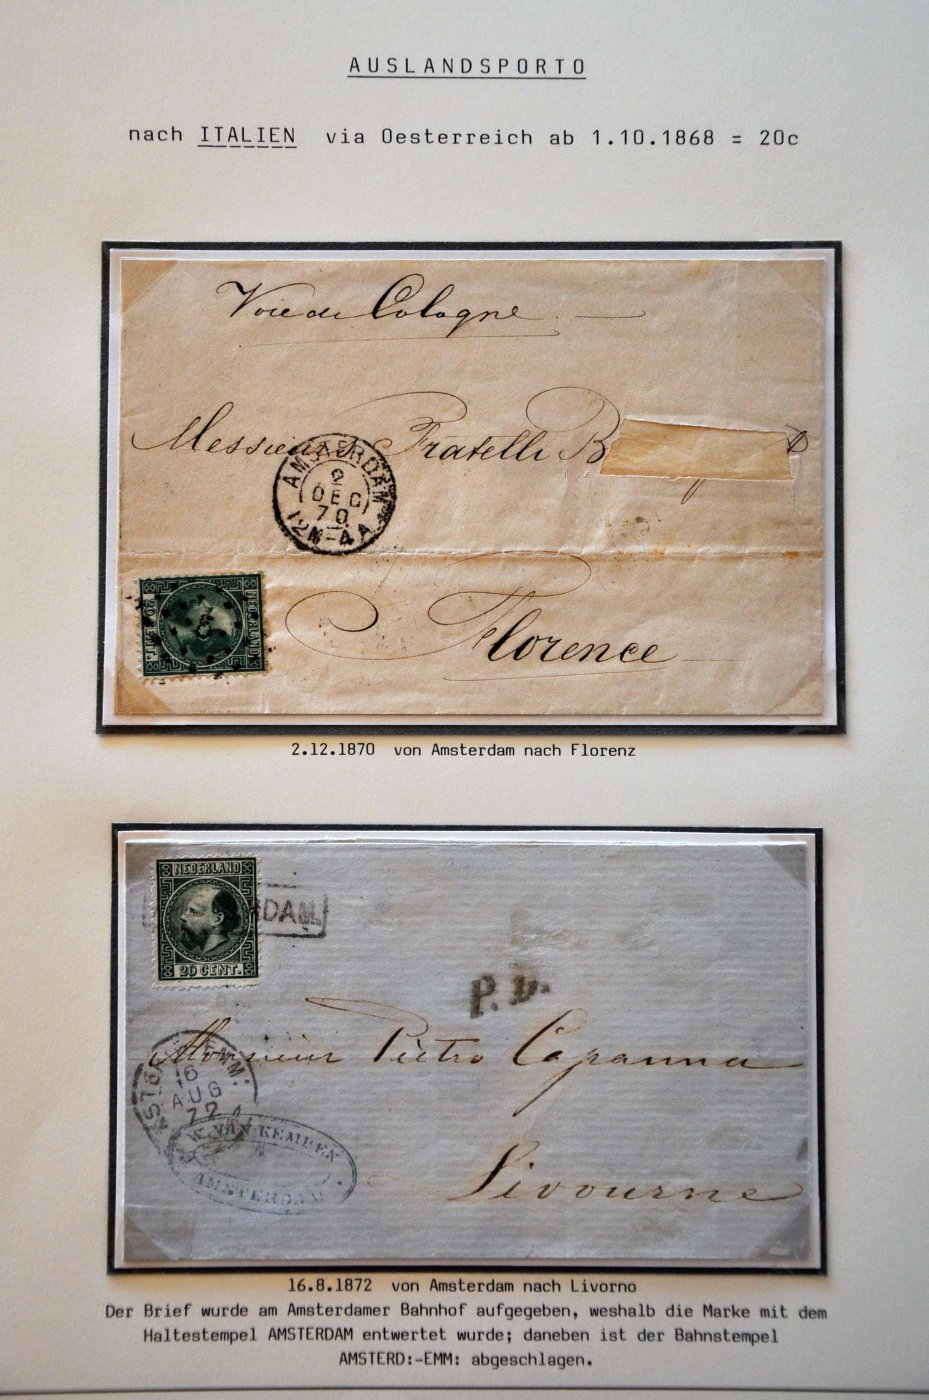 AUSLANDSPORTO
nach ITALIEN via Oesterreich ab 1.10.1868 = 20c
Voie de Cologne
Messieurs Fratelli B
AMSTERDAM
2
DEC
70
12M-4A
NEDERLAND
20 CENT.
5
Florence
2.12.1870 von Amsterdam nach Florenz
NEDERLAND
20 CENT.
DAM.
P.D.
Monsieur Pietro Capanna
AMSTERD:-EMM:
16
AUG
72
W. VAN KEMPEN
AMSTERDAM
Livourne
16.8.1872 von Amsterdam nach Livorno
Der Brief wurde am Amsterdamer Bahnhof aufgegeben, weshalb die Marke mit dem
Haltestempel AMSTERDAM entwertet wurde; daneben ist der Bahnstempel
AMSTERD:-EMM: abgeschlagen.